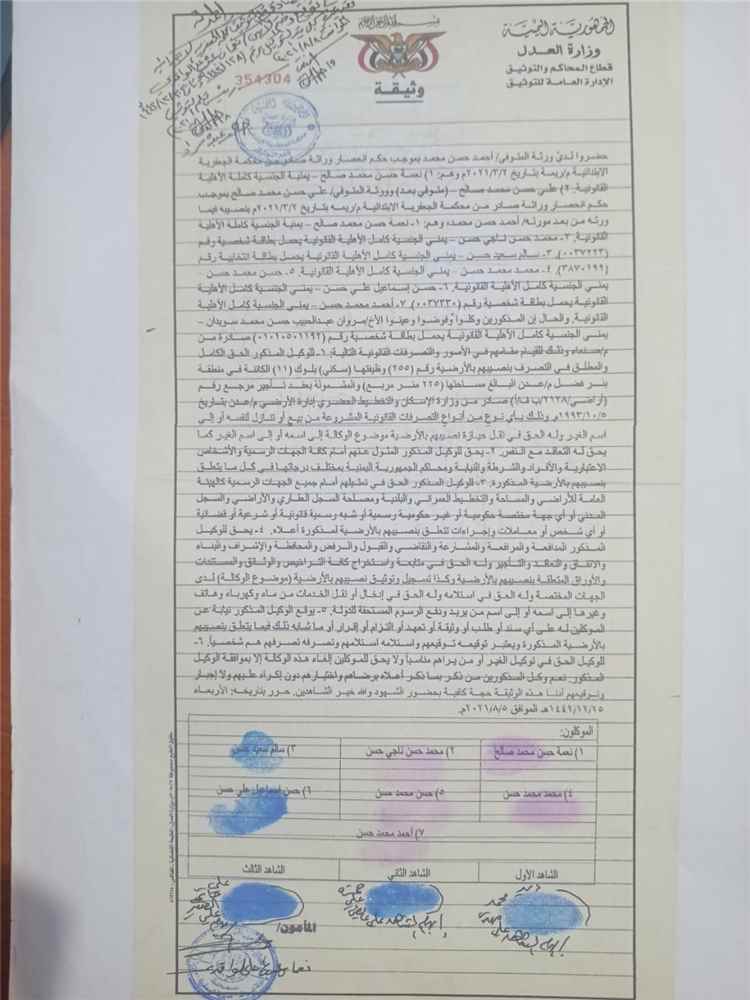 الجمهورية اليمنية
وزارة العدل
قطاع المحاكم والتوثيق
الإدارة العامة للتوثيق
وثيقة
354304
حضروا لدي ورثة المتوفي/ أحمد حسن محمد بموجب حكم انحصار وراثة صادر من محكمة الجعفرية
الابتدائية م/ريمة بتاريخ ٢٠٢١/٣/٢م وهم: ١) نعمة حسن محمد صالح – يمنية الجنسية كاملة الأهلية
القانونية. ٢) علي حسن محمد صالح – (متوفي بعد) وورثة المتوفي/ علي حسن محمد صالح بموجب
حكم انحصار وراثة صادر من محكمة الجعفرية الابتدائية م/ريمه بتاريخ ٢٠٢١/٣/٢م بنصيبه فيما
ورثه من بعد مورثه/ أحمد حسن محمد، وهم: ١- نعمة حسن محمد صالح – يمنية الجنسية كاملة الأهلية
القانونية. ٢- محمد حسن ناجي حسن – يمني الجنسية كامل الأهلية القانونية يحمل بطاقة شخصية رقم
(٠٠٣٧٢٢٣). ٣- سالم سعيد حسن – يمني الجنسية كامل الأهلية القانونية يحمل بطاقة انتخابية رقم
(٣٨٧٠١٩٩). ٤- محمد محمد حسن – يمني الجنسية كامل الأهلية القانونية. ٥- حسن محمد حسن –
يمني الجنسية كامل الأهلية القانونية. ٦- حسن إسماعيل علي حسن – يمني الجنسية كامل الأهلية
القانونية يحمل بطاقة شخصية رقم (٠٠٣٧٣٣٠). ٧- أحمد محمد حسن – يمني الجنسية كامل الأهلية
القانونية. والحال إن المذكورين وكلوا وفوضوا وعينوا الأخ/ مروان عبدالحبيب حسن محمد سويدان –
يمني الجنسية كامل الأهلية القانونية يحمل بطاقة شخصية رقم (٠١٠١٠٥٠١١٩٢) صادرة من
م/صنعاء وذلك للقيام مقامهم في الأمور والتصرفات القانونية التالية: ١- للوكيل المذكور الحق الكامل
والمطلق في التصرف بنصيبهم بالأرضية رقم (٢٥٥) وظيفتها (سكني) بلوك (١١) الكائنة في منطقة
بئر فضل م/عدن البالغ مساحتها (٢٢٥ متر مربع) والمشمولة بعقد تأجير مرجع رقم
(أراضي/٧١٣٨/ب ف أ) صادر من وزارة الإسكان والتخطيط الحضري إدارة الأراضي م/عدن بتاريخ
١٩٩٣/١٠/٥م وذلك بأي نوع من أنواع التصرفات القانونية المشروعة من بيع أو تنازل لنفسه أو إلى
اسم الغير وله الحق في نقل حيازة نصيبهم بالأرضية موضوع الوكالة إلى اسمه أو إلى اسم الغير كما
يحق له التعاقد مع النفس. ٢- يحق للوكيل المذكور المثول عنهم أمام كافة الجهات الرسمية والأشخاص
الاعتبارية والأفراد والشرطة والنيابة ومحاكم الجمهورية اليمنية بمختلف درجاتها في كل ما يتعلق
بنصيبهم بالأرضية المذكورة. ٣- للوكيل المذكور الحق في تمثيلهم أمام جميع الجهات الرسمية كالهيئة
العامة للأراضي والمساحة والتخطيط العمراني والبلدية ومصلحة السجل العقاري والأراضي والسجل
المدني أو أي جهة مختصة حكومية أو غير حكومية رسمية أو شبه رسمية قانونية أو شرعية أو قضائية
أو أي شخص أو معاملات وإجراءات تتعلق بنصيبهم بالأرضية لمذكورة أعلاه. ٤- يحق للوكيل
المذكور المدافعة والمرافعة والمشارعة والتقاضي والقبول والرفض والمحافظة والإشراف والبناء
والاتفاق والتعاقد والتأجير وله الحق في متابعة واستخراج كافة التراخيص والوثائق والمستندات
والأوراق المتعلقة بنصيبهم بالأرضية وكذا تسجيل وتوثيق نصيبهم بالأرضية (موضوع الوكالة) لدى
الجهات المختصة وله الحق في استلامه وله الحق في إدخال أو نقل الخدمات من ماء وكهرباء وهاتف
وغيرها إلى اسمه أو إلى اسم من يريد ودفع الرسوم المستحقة للدولة. ٥- يوقع الوكيل المذكور نيابة عن
الموكلين له على أي سند أو طلب أو وثيقة أو تعهد أو التزام أو إقرار أو ما شابه ذلك فيما يتعلق بنصيبهم
بالأرضية المذكورة ويعتبر توقيعه توقيعهم واستلامه استلامهم وتصرفه تصرفهم هم شخصياً. ٦-
للوكيل الحق في توكيل الغير أو من يراهم مناسباً ولا يحق للموكلين إلغاء هذه الوكالة إلا بموافقة الوكيل
المذكور. تعتم وكل المذكورين من ذكر بما ذكر أعلاه برضاهم واختيارهم دون إكراه عليهم ولا إجبار
وتوقيعهم أدنا هذه الوثيقة حجة كافية بحضور الشهود والله خير الشاهدين. حرر بتاريخه: الأربعاء
١٤٤٢/١٢/٢٥هـ الموافق ٢٠٢١/٨/٥م.
الموكلون:
١) نعمة حسن محمد صالح ٢) محمد حسن ناجي حسن ٣) سالم سعيد حسن
٤) محمد محمد حسن ٥) حسن محمد حسن ٦) حسن إسماعيل علي حسن
٧) أحمد محمد حسن
الشاهد الأول الشاهد الثاني الشاهد الثالث
المأمون/